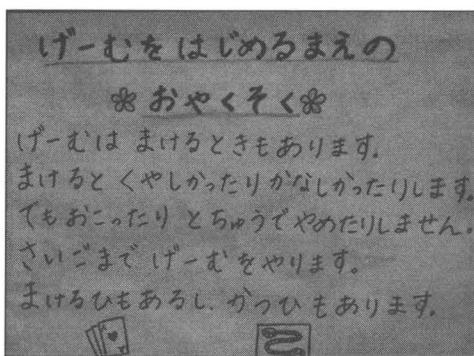 げーむをはじめるまえの
おやくそく
げーむは まけるときもあります。
まけると くやしかったりかなしかったりします。
でもおこったり とちゅうでやめたりしません。
さいごまで げーむをやります。
まけるひもあるし、かつひもあります。